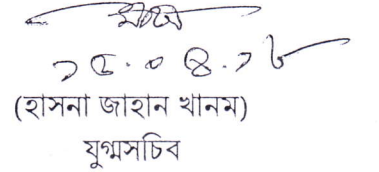 ১৫.০৪.১৮
(হাসনা জাহান খানম)
যুগ্মসচিব